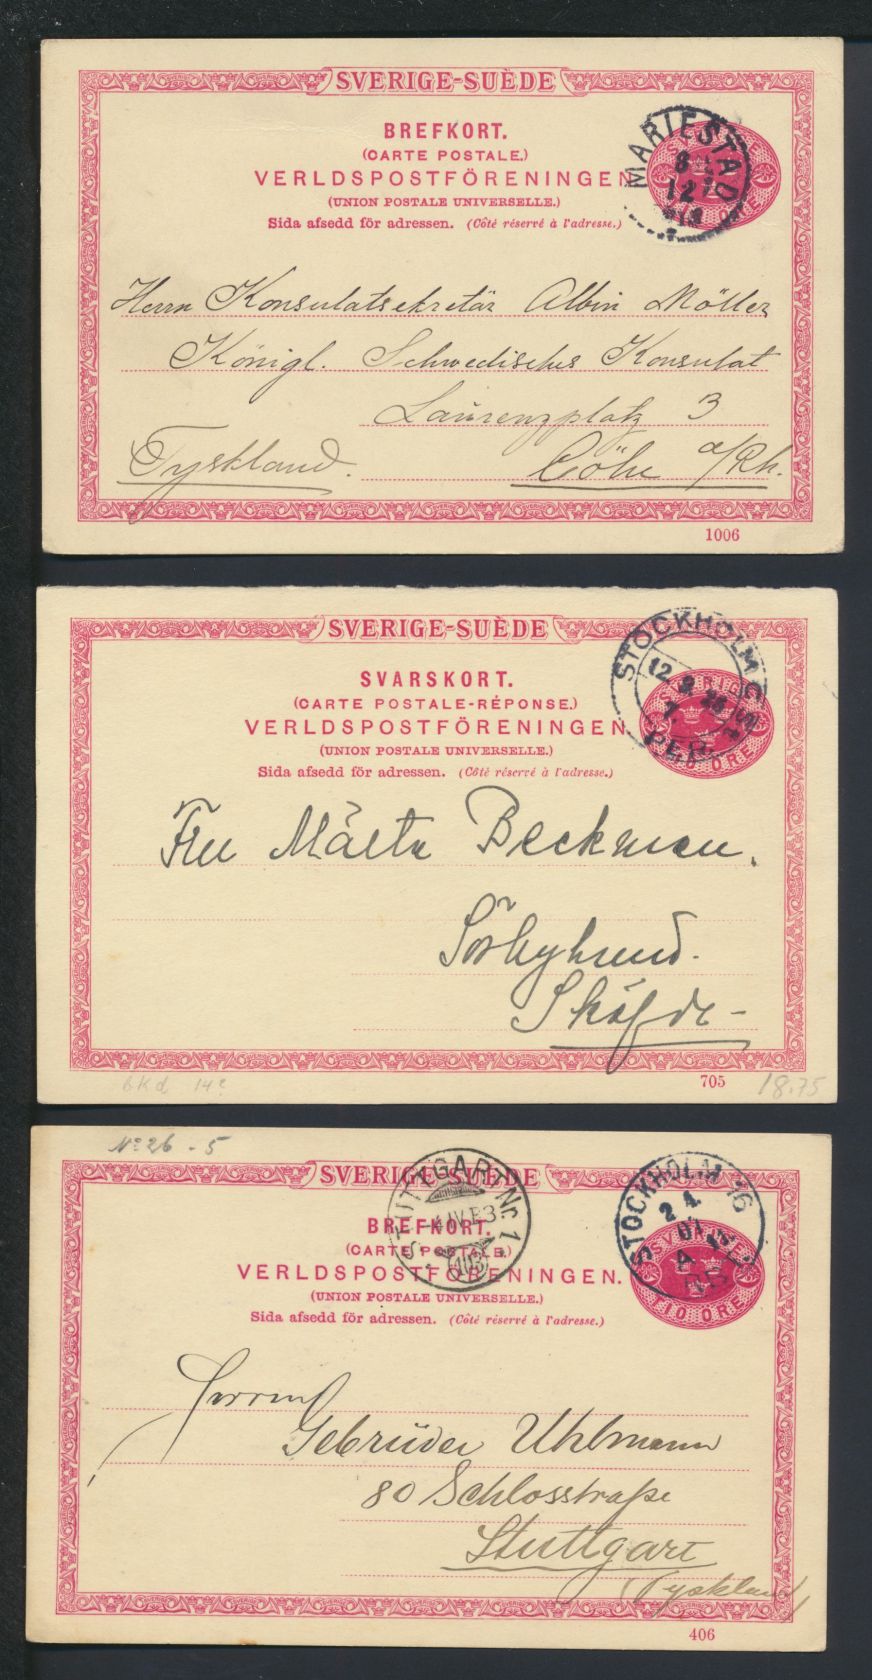 SVERIGE-SUÈDE
BREFKORT.
(CARTE POSTALE.)
VERLDSPOSTFÖRENINGEN
(UNION POSTALE UNIVERSELLE.)
Sida afsedd för adressen. (Côté réservé à l'adresse.)
MARIESTAD
12
ÖRE
Herrn Konsulatsekretär Albin Möller
Königl. Schwedisches Konsulat
Laurenzplatz 3
Tyskland. Cöln a/Rh.
1006
SVERIGE-SUÈDE
SVARSKORT.
(CARTE POSTALE-RÉPONSE.)
VERLDSPOSTFÖRENINGEN
(UNION POSTALE UNIVERSELLE.)
Sida afsedd för adressen. (Côté réservé à l'adresse.)
STOCKHOLM C
12
25
SVERIGE
ÖRE
Fru Märta Beckman.
Sörbylund.
Sköfde
705
18.75
No 26 - 5
SVERIGE-SUÈDE
BREFKORT.
(CARTE POSTALE.)
VERLDSPOSTFÖRENINGEN.
(UNION POSTALE UNIVERSELLE.)
Sida afsedd för adressen. (Côté réservé à l'adresse.)
STUTTGART Nr. 1
STOCKHOLM 16
2 4.
TIO ÖRE
Herren
Gebrüder Uhlmann
80 Schlosstraße
Stuttgart
Tyskland
406